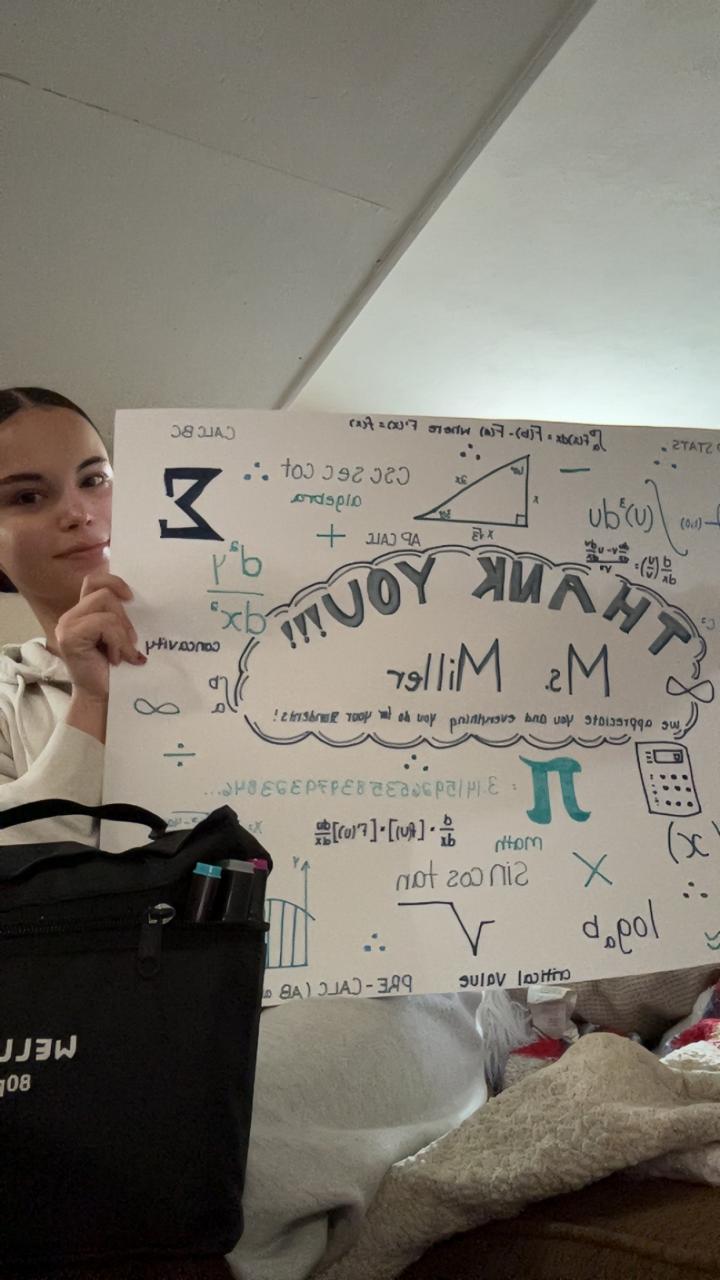 CALC BC
∫ₐᵇ f(x)dx = F(b) - F(a) where F'(x) = f(x)
STATS
csc sec cot
algebra
Σ
2x
60°
x
30°
x√3
AP CALC
+
−
∫(u)³du
d²y
dx²
d/dx (u/v) =
THANK YOU!!!
Ms. Miller
we appreciate you and everything you do for your students!
concavity
∞
∞
÷
π : 3.14159265358979323846...
d/dx · [f(u)] = [F'(u)] du/dx
math
sin cos tan
×
y
√
logₐb
PRE-CALC (AB
critical value
WELL
80p